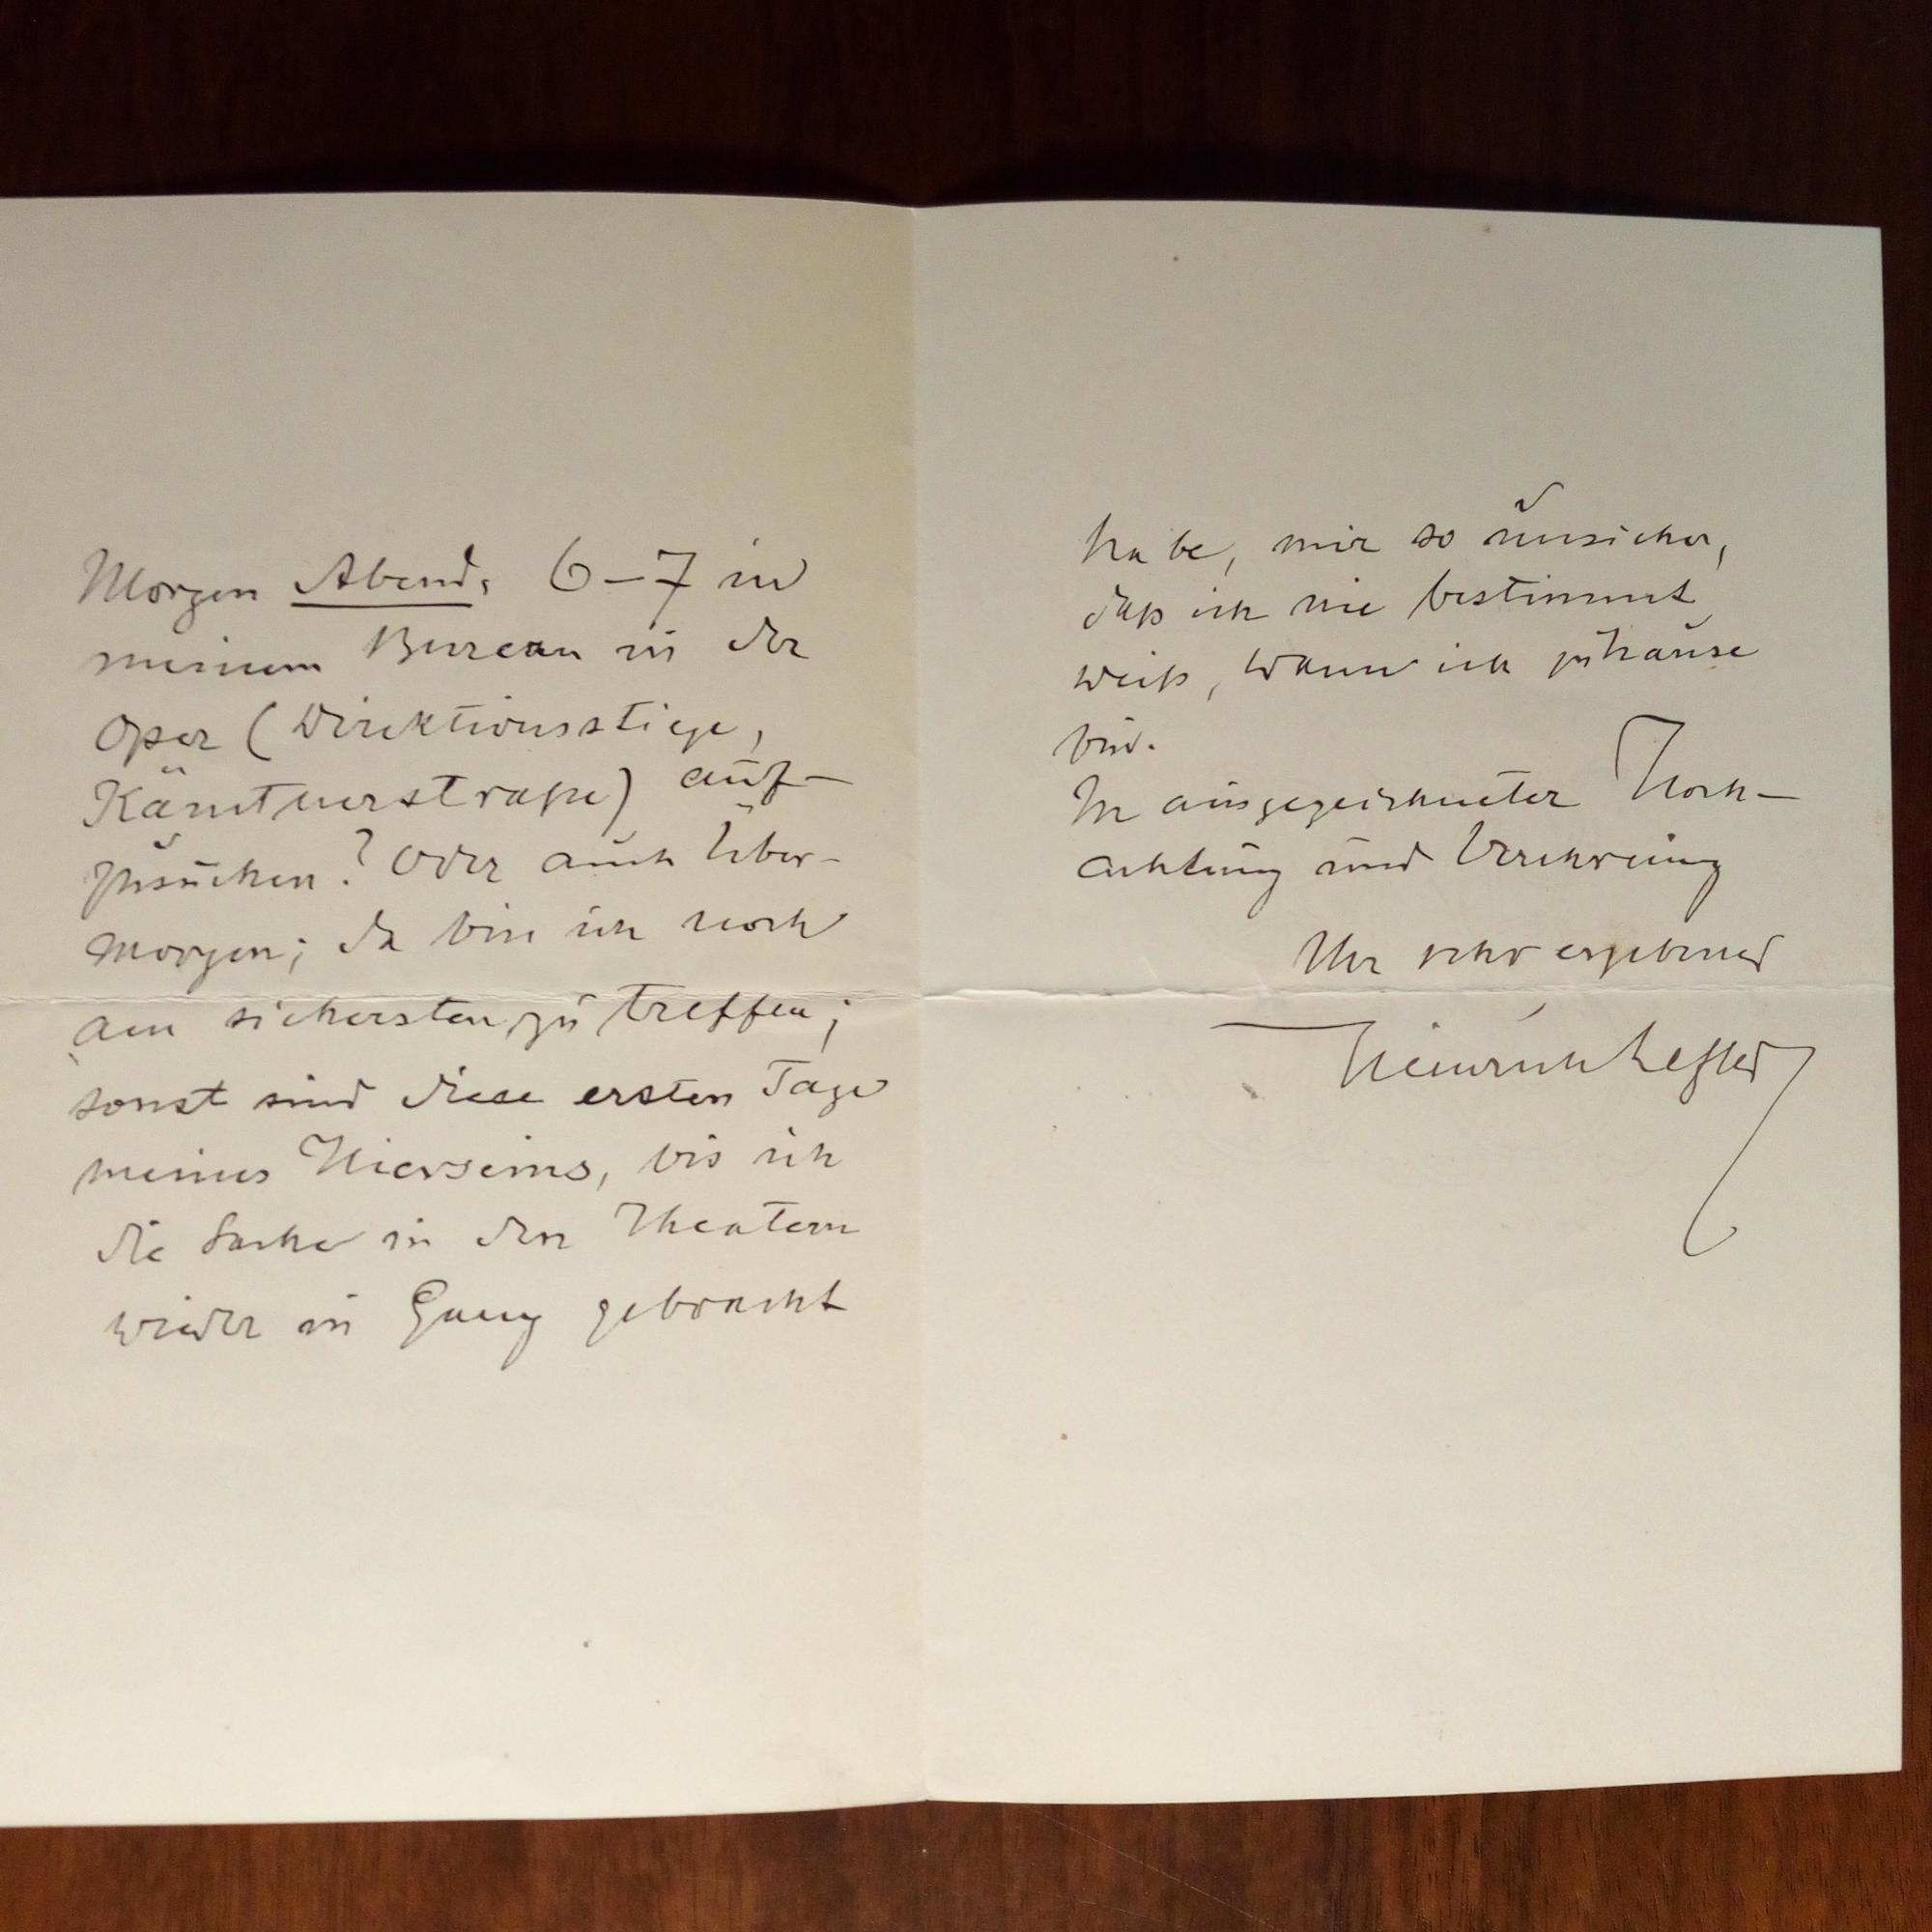 Morgen Abend, 6–7 in
meinem Bureau in der
Oper (Direktionsstiege,
Kärntnerstraße) auf-
zusuchen? Oder auch Über-
morgen; da bin ich noch
am sichersten zu treffen;
sonst sind diese ersten Tage
meines Hierseins, bis ich
die Sache in den Theatern
wieder in Gang gebracht
habe, mir so unsicher,
daß ich nie bestimmt
weiß, wann ich zuhause
bin.
In ausgezeichneter Hoch-
achtung und Verehrung
Ihr sehr ergebener
Heinrich Lefler